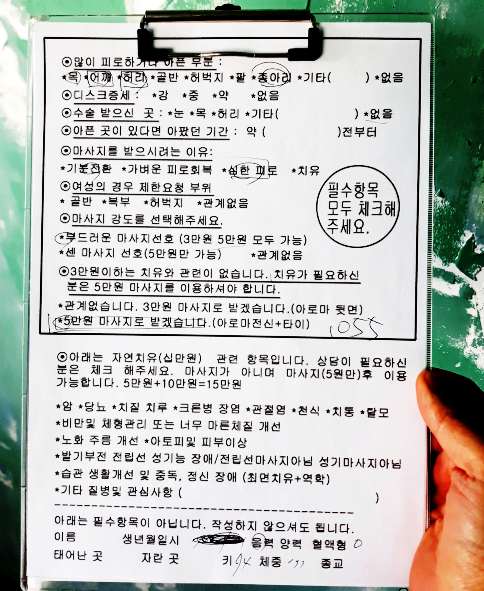 ⊙많이 피로하거나 아픈 부분 :
*목 *어깨 *허리 *골반 *허벅지 *팔 *종아리 *기타( ) *없음
⊙디스크증세 : *강 *중 *약 *없음
⊙수술 받으신 곳 : *눈 *목 *허리 *기타( ) *없음
⊙아픈 곳이 있다면 아팠던 기간 : 약 ( )전부터
⊙마사지를 받으시려는 이유:
*기분전환 *가벼운 피로회복 *심한 피로 *치유
⊙여성의 경우 제한요청 부위
* 골반 *복부 *허벅지 *관계없음
⊙마사지 강도를 선택해주세요.
*부드러운 마사지선호 (3만원 5만원 모두 가능)
*센 마사지 선호(5만원만 가능) *관계없음
필수항목
모두 체크해
주세요.
⊙3만원이하는 치유와 관련이 없습니다. 치유가 필요하신
분은 5만원 마사지를 이용하셔야 합니다.
*관계없습니다. 3만원 마사지로 받겠습니다.(아로마 뒷면)
*5만원 마사지로 받겠습니다.(아로마전신+타이) 1055
⊙아래는 자연치유(십만원) 관련 항목입니다. 상담이 필요하신
분은 체크 해주세요. 마사지가 아니며 마사지(5원만)후 이용
가능합니다. 5만원+10만원=15만원
*암 *당뇨 *치질 치루 *크론병 장염 *관절염 *천식 *치통 *탈모
*비만및 체형관리 또는 너무 마른체질 개선
*노화 주름 개선 *아토피및 피부이상
*발기부전 전립선 성기능 장애/전립선마사지아님 성기마사지아님
*습관 생활개선 및 중독, 정신 장애 (최면치유+역학)
*기타 질병및 관심사항 ( )
아래는 필수항목이 아닙니다. 작성하지 않으셔도 됩니다.
이름 생년월일시 음력 양력 혈액형 O
태어난 곳 자란 곳 키 체중 종교